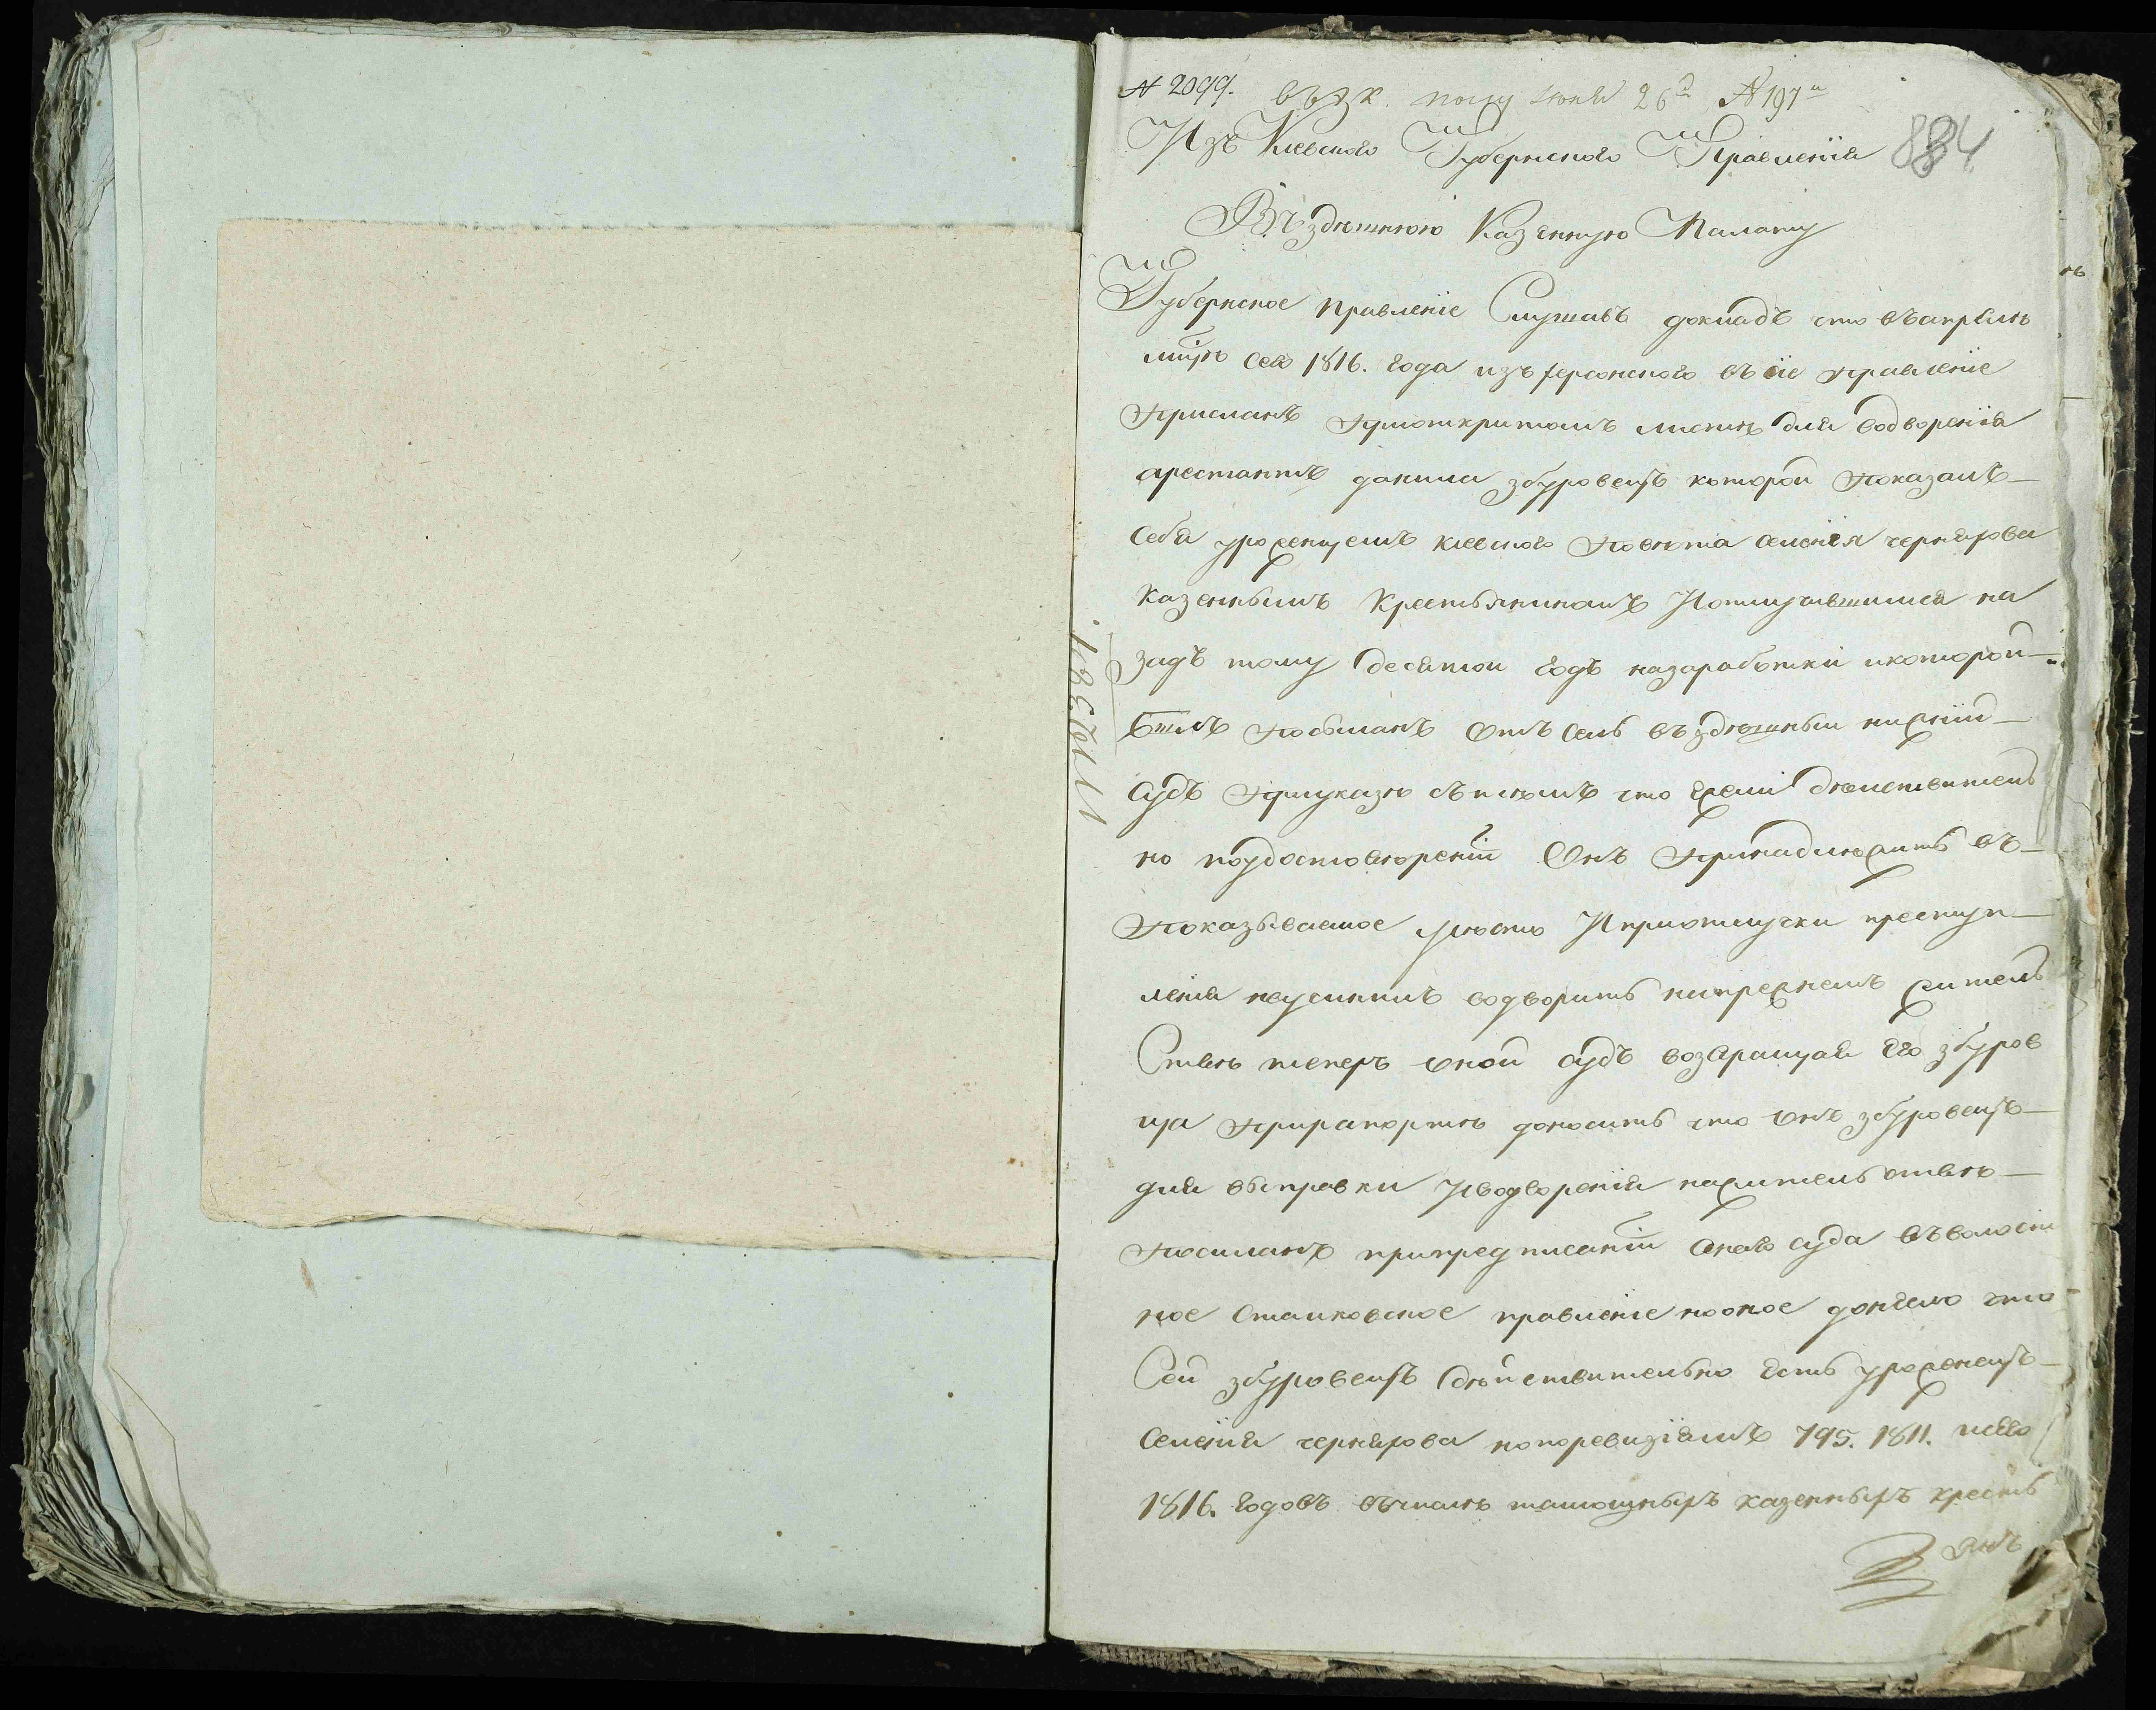 № 2099. въ К. полу Июня 26д № 197
884
Изъ Киевского Губернского Правленїя
Въ здѣшнюю Казенную Палату
Губернское правленїе Слушавъ докладъ что въ апрѣлѣ
мцѣ сего 1816. года изъ херсонского въ сїе правленїе
присланъ приоткритомъ листѣ для водворенїя
арестантъ данила збуровецъ которой показалъ
себя уроженцемъ киевского повѣта селенїя черняхова
казеннымъ крестьяниномъ И отлучившимся на
задъ тому десятой годъ назаработки икоторой
былъ посыланъ отъ сель въ здѣшный нижнїй
судъ приуказѣ съ тѣмъ что ежели дѣйствитель
но поудостовѣренїи Онъ принадлѣжитъ въ
показываемое мѣсто И приотлучки преступ
ленїя неучинилъ водворить напрежнемъ житель
Ствѣ теперь оной судъ возвращая Его збуров
ца прирапортѣ доноситъ что онъ збуровецъ
для выправки И водворенїя нажительствѣ
посиланъ припредписанїи онаго суда въ волост
ное Стайковское правленїе но оное донесло что
Сей збуровецъ дѣйствительно Есть уроженецъ
Селенїя черняхова но поревизїямъ 795. 1811. исего
1816. годовъ въчислѣ тамошныхъ казенныхъ кресть
янъ
№ 12387.